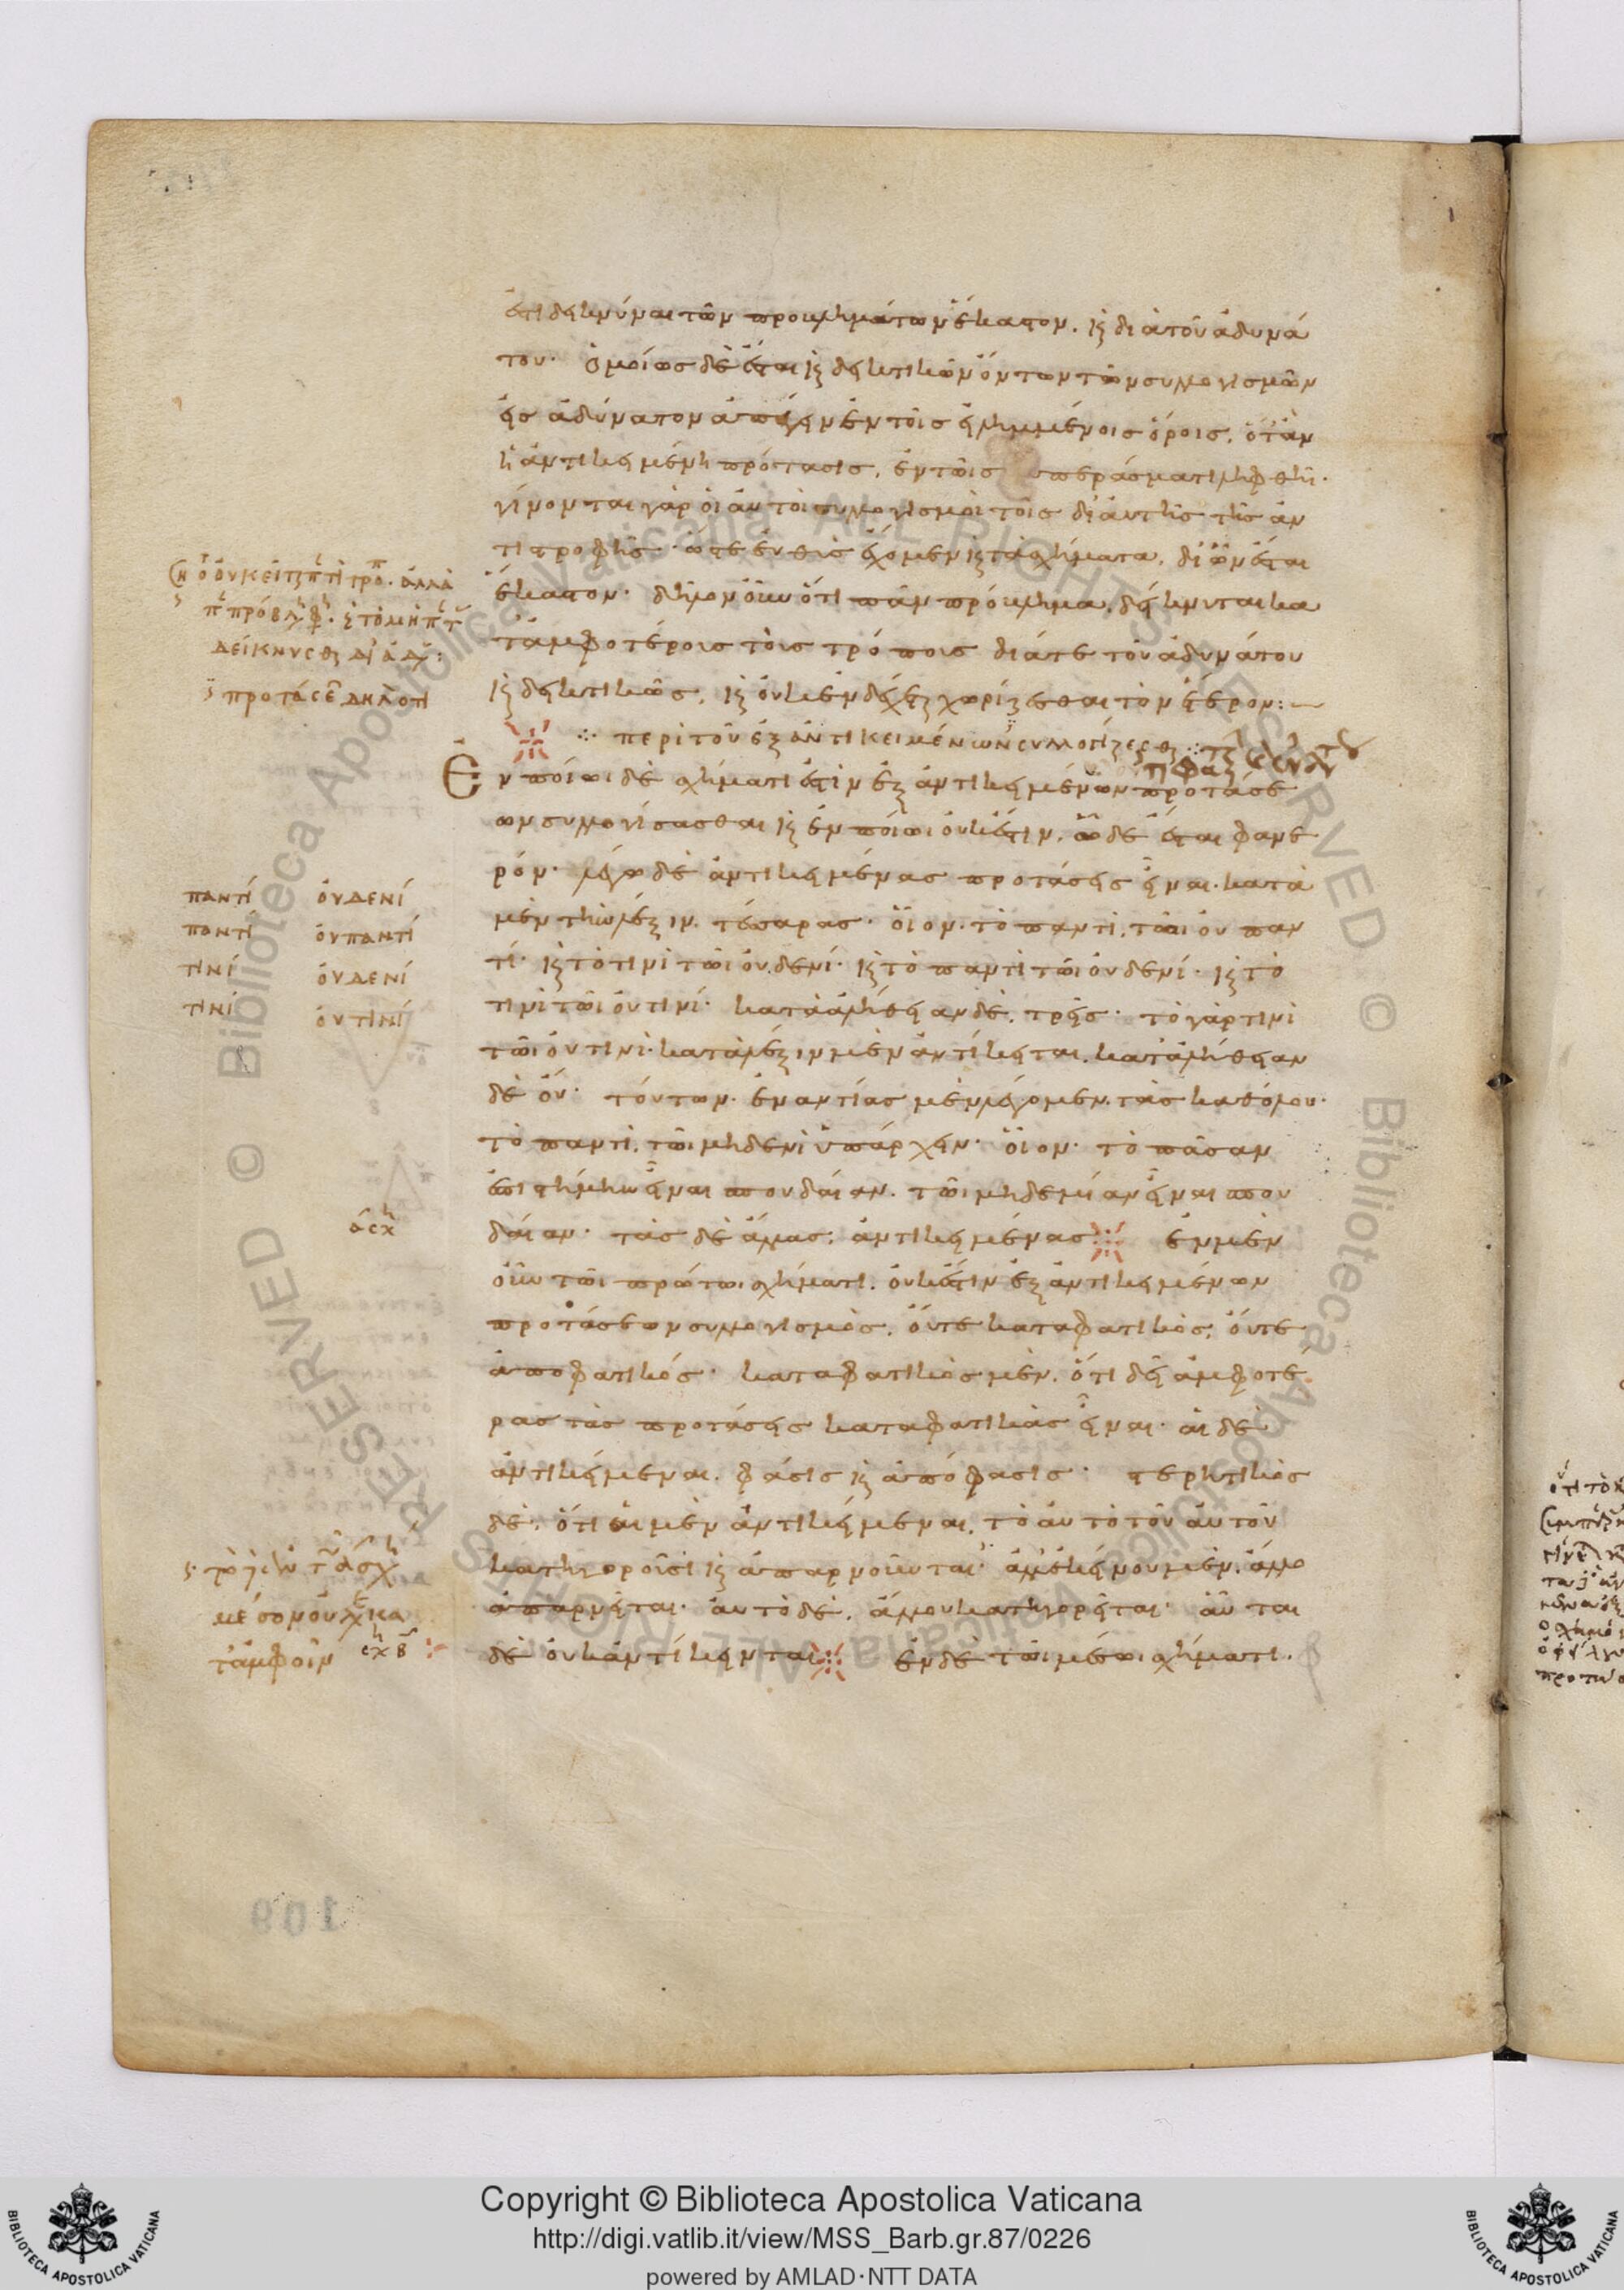 ἔστι δεικνύναι τῶν προβλημάτων ἕκαστον. καὶ διὰ τοῦ ἀδυνά
του· ὁμοίως δὲ ἔσται καὶ δεικτικῶν ὄντων τῶν συλλογισμῶν
εἰς ἀδύνατον ἀπάγειν ἐν τοῖς εἰλημμένοις ὅροις. ὅταν
ἡ ἀντικειμένη πρότασις, ἐν τῶι συμπεράσματι ληφθῆι·
γίνονται γὰρ οἱ αὐτοὶ συλλογισμοὶ τοῖς διὰ τῆς ἀν
τιστροφῆς· ὥστε εὐθὺς ἔχομεν καὶ τὰ σχήματα, δι' ὧν ἔσται
ἕκαστον· δῆλον οὖν ὅτι πᾶν πρόβλημα, δείκνυται κα
τ' ἀμφοτέρους τοὺς τρόπους διά τε τοῦ ἀδυνάτου
καὶ δεικτικῶς, καὶ οὐκ ἐνδέχεται χωρίζεσθαι τὸν ἕτερον:
περὶ τοῦ ἐξ ἀντικειμένων συλλογίζεσθαι
Ἐν ποίωι δὲ σχήματι ἔστιν ἐξ ἀντικειμένων προτάσε
ων συλλογίσασθαι καὶ ἐν ποίωι οὐκ ἔστιν, ὧδε ἔσται φανε
ρόν· λέγω δὲ ἀντικειμένας προτάσεις εἶναι· κατὰ
μὲν τὴν λέξιν, τέσσαρας· οἷον· τὸ παντὶ, τῶι οὐ παν
τί· καὶ τὸ τινὶ τῶι οὐδενί· καὶ τὸ παντὶ τῶι οὐδενί· καὶ τὸ
τινὶ τῶι οὐ τινί· κατὰ ἀλήθειαν δὲ, τρεῖς· τὸ γὰρ τινὶ
τῶι οὐ τινὶ· κατὰ λέξιν μὲν ἀντίκειται, κατ' ἀλήθειαν
δὲ οὔ· τούτων· ἐναντίας μὲν λέγομεν, τὰς καθόλου·
τὸ παντὶ, τῶι μηδενὶ ὑπάρχειν· οἷον· τὸ πᾶσαν
ἐπιστήμην εἶναι σπουδαίαν, τῶι μηδεμίαν εἶναι σπου
δαίαν· τὰς δὲ ἄλλας, ἀντικειμένας ἐν μὲν
οὖν τῶι πρώτωι σχήματι, οὐκ ἔστιν ἐξ ἀντικειμένων
προτάσεων συλλογισμός, οὔτε καταφατικός, οὔτε
ἀποφατικός· καταφατικὸς μὲν, ὅτι δεῖ ἀμφοτέ
ρας τὰς προτάσεις καταφατικὰς εἶναι· αἱ δὲ
ἀντικείμεναι, φάσις καὶ ἀπόφασις· στερητικὸς
δὲ, ὅτι αἱ μὲν ἀντικείμεναι, τὸ αὐτὸ τοῦ αὐτοῦ
κατηγοροῦσι καὶ ἀπαρνοῦνται· ἀλλ' ἐκείνου μὲν, ἄλλο
ἀπαρνεῖται· αὐτὸ δὲ, ἄλλου κατηγορεῖται· αὗται
δὲ οὐκ ἀντίκεινται ἐν δὲ τῶι μέσωι σχήματι.
προτάσε δηλονότι
παντί οὐδενί
παντί οὐ παντί
τινί οὐδενί
τινί οὐ τινί
109
Copyright © Biblioteca Apostolica Vaticana
http://digi.vatlib.it/view/MSS_Barb.gr.87/0226
powered by AMLAD·NTT DATA
BIBLIOTECA APOSTOLICA VATICANA
BIBLIOTECA APOSTOLICA VATICANA